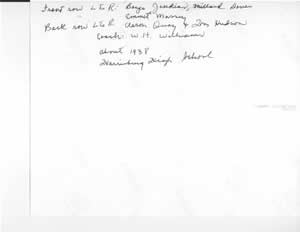 Front row L to R: Boyce Jordan, Millard Dover
Emmit Massey
Back row L to R: Aaron Quay & Don Hudson
Coach: W.H. Williams
about 1938
High School